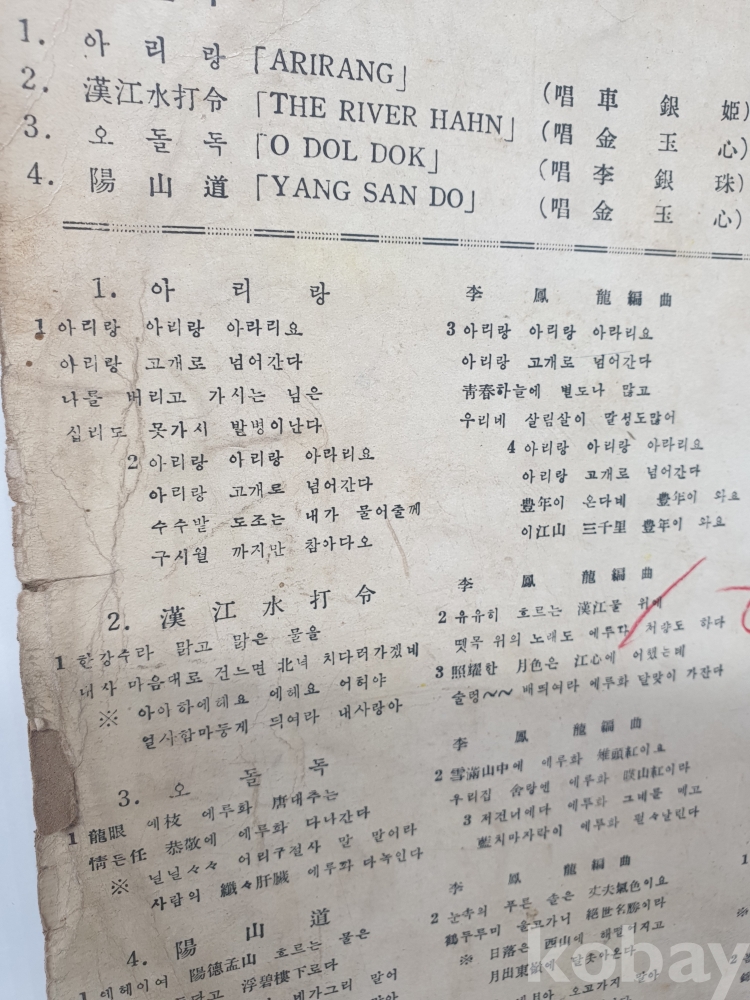 1. 아 리 랑 「ARIRANG」 (唱 車 銀 姬)
2. 漢江水打令 「THE RIVER HAHN」 (唱 金 玉 心)
3. 오 돌 독 「O DOL DOK」 (唱 李 銀 珠)
4. 陽 山 道 「YANG SAN DO」 (唱 金 玉 心)
1. 아 리 랑 李 鳳 龍 編 曲
1 아리랑 아리랑 아라리요
아리랑 고개로 넘어간다
나를 버리고 가시는 님은
십리도 못가시 발병이난다
2 아리랑 아리랑 아라리요
아리랑 고개로 넘어간다
수수밭 도조는 내가 물어줄께
구시월 까지만 참아다오
3 아리랑 아리랑 아라리요
아리랑 고개로 넘어간다
靑春하늘에 별도나 많고
우리네 살림살이 말성도많어
4 아리랑 아리랑 아라리요
아리랑 고개로 넘어간다
豊年이 온다네 豊年이 와요
이江山 三千里 豊年이 와요
2. 漢 江 水 打 令 李 鳳 龍 編 曲
1 한강수라 맑고 맑은 물을
내사 마음대로 건느면 北녁 치다러가겠네
※ 아이하에헤요 에헤요 어허야
얼사함마둥게 듸여라 내사랑아
2 유유히 흐르는 漢江물 위에
뗏목 위의 노래도 에루화 처량도 하다
3 照耀한 月色은 江心에 어렸는데
술렁~~ 배띄여라 에루화 달맞이 가잔다
3. 오 돌 독 李 鳳 龍 編 曲
1 龍眼 에枝 에루화 唐대추는
情든任 恭敬에 에루화 다나간다
※ 닐닐々々 어리구절사 말 말이라
사람의 纖々肝臟 에루화 다녹인다
2 雪滿山中에 에루화 雉頭紅이요
우리집 舍랑엔 에루화 暎山紅이라
3 저건너에다 에루화 그네를 메고
藍치마자락이 에루화 펄々날린다
4. 陽 山 道 李 鳳 龍 編 曲
1 에헤이여 陽德孟山 흐르는 물은
浮碧樓下로다
2 눈속의 푸른 솔은 丈夫氣色이요
鶴두루미 울고가니 絕世名勝이라
※ 日落은 西山에 해떨어지고
月出東嶺에 달솟아온다
kobay